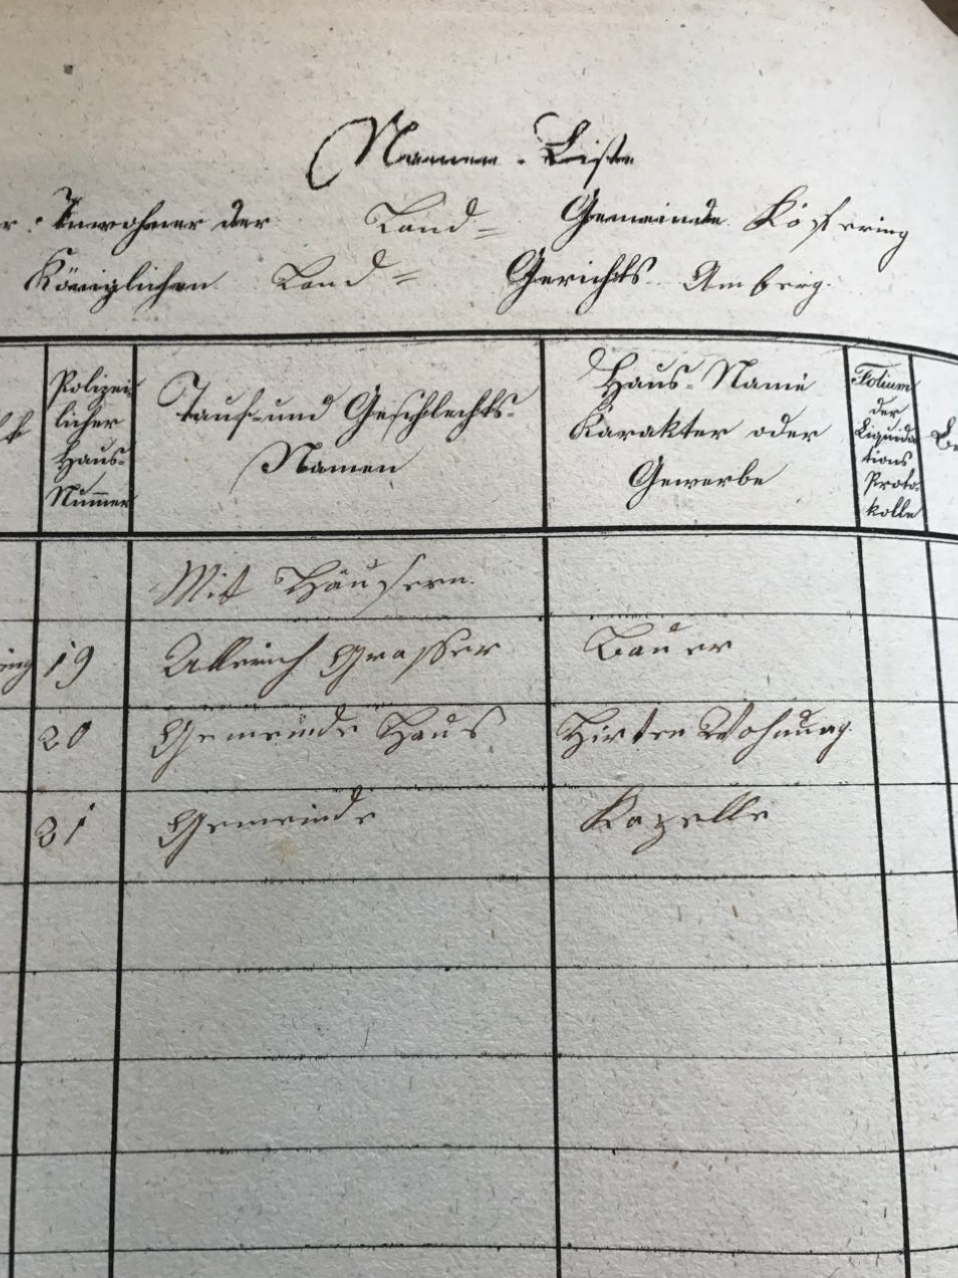 Namen-Liste
Inwohner der Land= Gemeinde Köfering
Königlichen Land= Gerichts Amberg.
Polizei
licher
Haus-
Nummer
Tauf- und Geschlechts-
Namen
Haus-Name
Karakter oder
Gewerbe
Folium
der
Liquida
tions
Proto-
kolle
Mit Häusern.
19 Grasser Bauer
20 Gemeinde Haus Hirten Wohnung
21 Gemeinde Kapelle